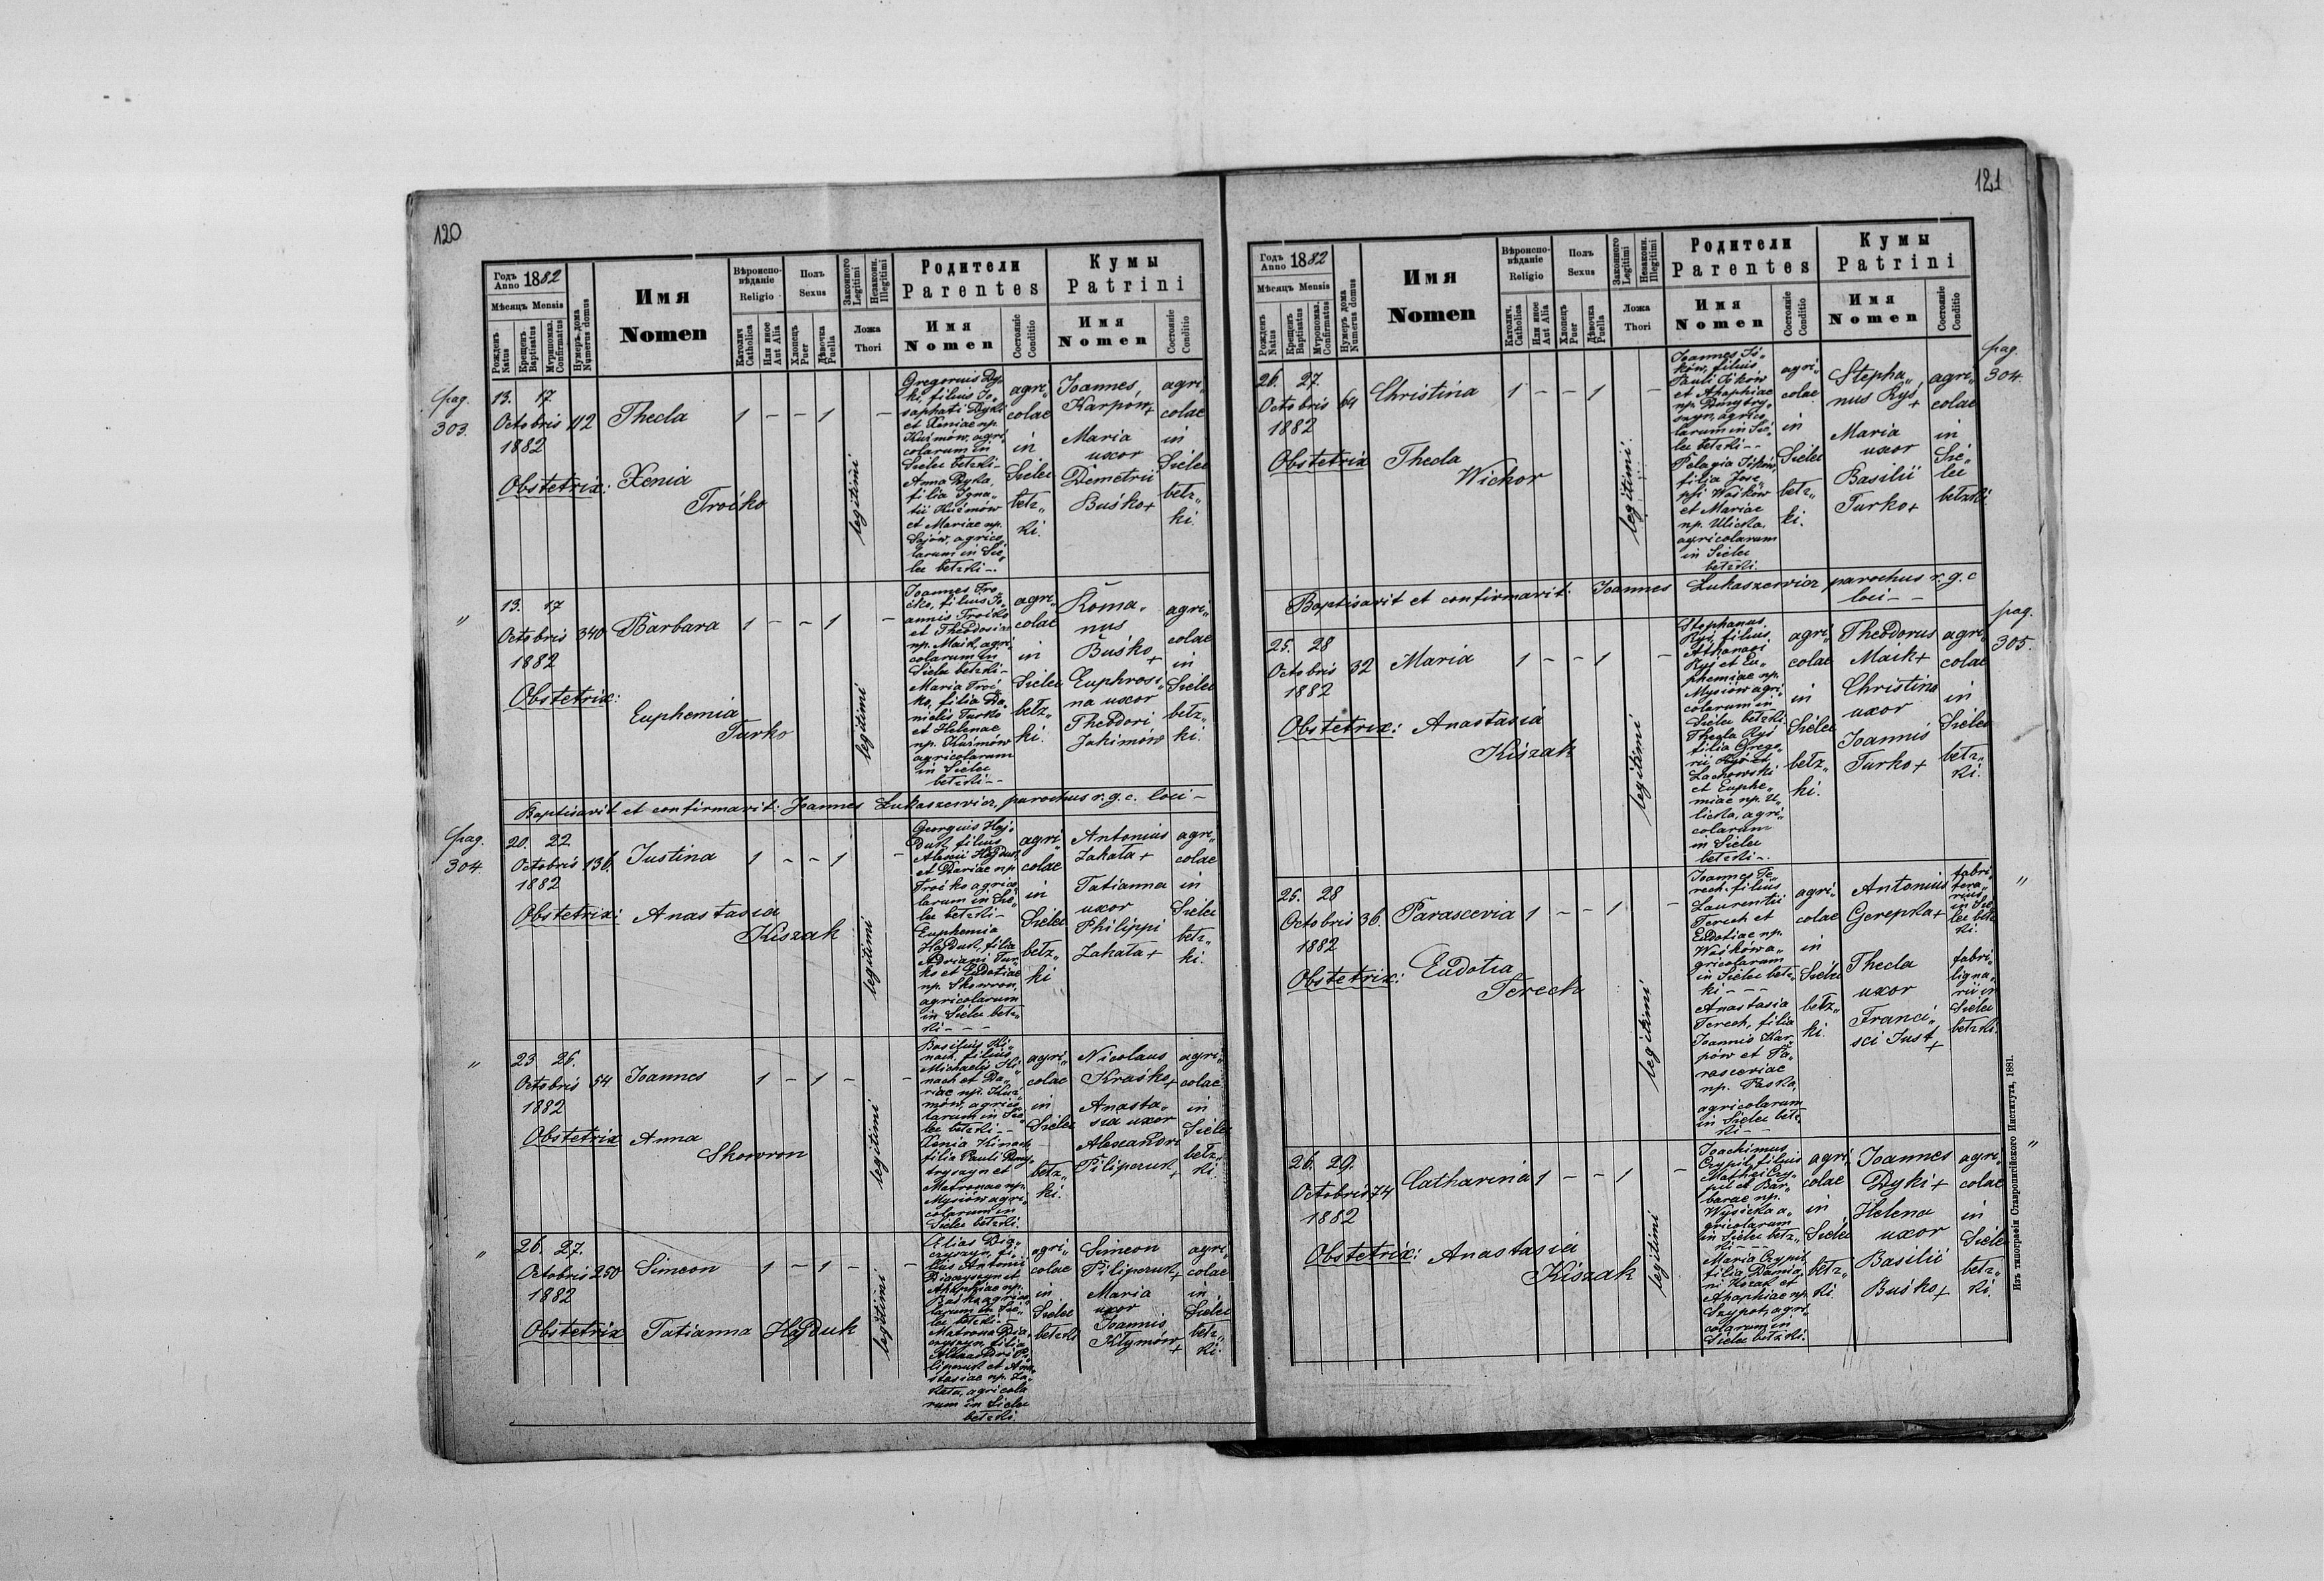 120
Годъ Anno 1882
Мѣсяцъ Mensis
Рожденъ Natus
Крещенъ Baptisatus
Мѵропомаз. Confirmatus
Нумеръ дома Numerus domus
Имя
Nomen
Вѣроиспо-
вѣданіе
Religio
Католич. Catholica
Или иное Aut Alia
Полъ
Sexus
Хлопецъ Puer
Дѣвочка Puella
Законного Legitimi
Незаконн. Illegitimi
Ложа
Thori
Родители
Parentes
Имя
Nomen
Состояніе Conditio
Кумы
Patrini
Имя
Nomen
Состояніе Conditio
pag.
303.
13. 17.
Octobris 112 Thecla 1 - - 1 -
1882
Obstetrix: Xenia
Troćko
legitimi
Gregorius Dy-
ki, filius Jo-
saphati Dyki
et Xeniae np.
Kuźmów, agri
colarum in
Sielec bełzki -
Anna Dyka,
filia Igna-
tii Kuźmów
et Mariae np.
Sajów, agrico
larum in Sie
lec bełzki -.
agri„
colae
in
Sielec
bełz„
ki.
Joannes
Karpów+
Maria
uxor
Demetrii
Buśko+
agri„
colae
in
Sielec
bełz„
ki.
„
13. 17
Octobris 340 Barbara 1 - - 1 -
1882
Obstetrix:
Euphemia
Turko
legitimi
Joannes Tro„
ćko, filius Jo„
annis Troćko
et Theodosiae
np. Maik, agri
colarum in
Sielec bełzki -
Maria Troć„
ko, filia Da„
nielis Turko
et Helenae
np. Kuźmów
agricolarum
in Sielec
bełzki - -
agri„
colae
in
Sielec
bełz„
ki.
Roma„
nus
Buśko
+
Euphrosi„
na uxor
Theodori
Jakimów
agri„
colae
in
Sielec
bełz„
ki.
Baptisavit et confirmavit: Joannes Łukaszewicz, parochus r. g. c. loci -
pag.
304.
20. 22
Octobris 136. Justina 1 - - 1 -
1882
Obstetrix: Anastasia
Kiszak
legitimi
Georgius Haj„
duk, filius
Alexii Hajduk
et Dariae np
Troćko agrico
larum in Sie„
lec bełzki -
Euphemia
Hajduk, filia
Adriani Tur„
ko et Eudotiae
np. Skowron,
agricolarum
in Sielec bełz„
ki - - -
agri„
colae
in
Sielec
bełz„
ki
Antonius
Zakała +
Tatianna
uxor
Philippi
Zakała +
agri„
colae
in
Sielec
bełz„
ki.
„
23 26.
Octobris 54 Joannes 1 - 1 - -
1882
Obstetrix Anna
Skowron
legitimi
Basilius Ki„
nach, filius
Michaelis Ki„
nach et Da„
riae np. Kuź„
mów, agrico
larum in Sie
lec bełzki - -
Xenia Kinach
filia Pauli Dmy„
tryszyn et
Matronae np.
Mysiów agri„
colarum in
Sielec bełzki.
agri„
colae
in
Sielec
bełz„
ki.
Nicolaus
Kraśko+
Anasta„
sia uxor
Alexandri
Piliperuk
+
agri„
colae
in
Sielec
bełz„
ki.
„
26. 27.
Octobris 250 Simeon 1 - 1 - -
1882
Obstetrix Tatianna Hajduk
legitimi
agri„
colae
in
Sielec
bełzki
Simeon
Piliperuk+
Maria
uxor
Joannis
Kłymów
+
agri„
colae
in
Sielec
bełz„
ki.
121
Годъ Anno 1882
Мѣсяцъ Mensis
Рожденъ Natus
Крещенъ Baptisatus
Мѵропомаз. Confirmatus
Нумеръ дома Numerus domus
Имя
Nomen
Вѣроиспо-
вѣданіе
Religio
Католич. Catholica
Или иное Aut Alia
Полъ
Sexus
Хлопецъ Puer
Дѣвочка Puella
Законного Legitimi
Незаконн. Illegitimi
Ложа
Thori
Родители
Parentes
Имя
Nomen
Состояніе Conditio
Кумы
Patrini
Имя
Nomen
Состояніе Conditio
pag.
304.
26. 27.
Octobris 64 Christina 1 - - 1 -
1882
Obstetrix Thecla
Wichor
legitimi
filius
et Agaphiae
larum in Sie„
lec bełzki - -
Pelagia
filia Jose„
phi Waśków
et Mariae
np. Ulicka,
agricolarum
in Sielec
bełzki.
agri„
colae
in
Sielec
bełz„
ki.
Stepha„
nus Ryś
+
Maria
uxor
Basilii
Turko+
agri„
colae
in
Sie„
lec
bełzki
Baptisavit et confirmavit: Joannes Łukaszewicz parochus r. g. c
loci - -
pag.
305.
25. 28
Octobris 32 Maria 1 - - 1 -
1882
Obstetrix: Anastasia
Kiszak
legitimi
Stephanus
Ryś, filius
Athanasi
Ryś et Eu„
phemiae np.
Mysiów agri„
colarum in
Sielec bełzki
Thecla Ryś
filia Grego„
rii Ryś et
Lachowski
et Euphe„
miae np. U„
licka, agri„
colarum
in Sielec
bełzki -.
agri„
colae
in
Sielec
bełz„
ki.
Theodorus
Maik+
Christina
uxor
Joannis
Turko+
agri„
colae
in
Sielec
bełz„
ki.
„
25. 28
Octobris 36. Parascevia 1 - - 1 -
1882
Obstetrix: Eudotia
Terech
legitimi
Joannes Te„
rech, filius
Laurentii
Terech et
Eudotiae np.
Waśków a„
gricolarum
in Sielec bełz„
ki - - -
Anastasia
Terech, filia
Joannis Kar„
pów et Pa„
rasceviae
np. Paska,
agricolarum
in Sielec bełz„
ki - -
agri„
colae
in
Sielec
bełz„
ki.
Antonius
Gerepka+
Thecla
uxor
Franci„
sci Just
+
fabri„
in Sie„
lec bełz
ki.
fabri„
ligna„
rii in
Sielec
bełzki
„
26. 29.
Octobris 74 Catharina 1 - - 1 -
1882
Obstetrix: Anastasia
Kiszak
legitimi
Joachimus
Czypil, filius
Mathei Czy„
pil et Bar„
barae np.
Wysicka a„
gricolarum
in Sielec bełz„
ki - - -
Maria Czypil
filia Damia„
ni Kozak et
Agaphiae np.
Szypot, agri„
colarum in
Sielec bełzki.
agri„
colae
in
Sielec
bełz„
ki.
Joannes
Dyki +
Helena
uxor
Basilii
Buśko+
agri„
colae
in
Sielec
bełz„
ki.
Изъ типографіи Ставропигійского Института, 1881.